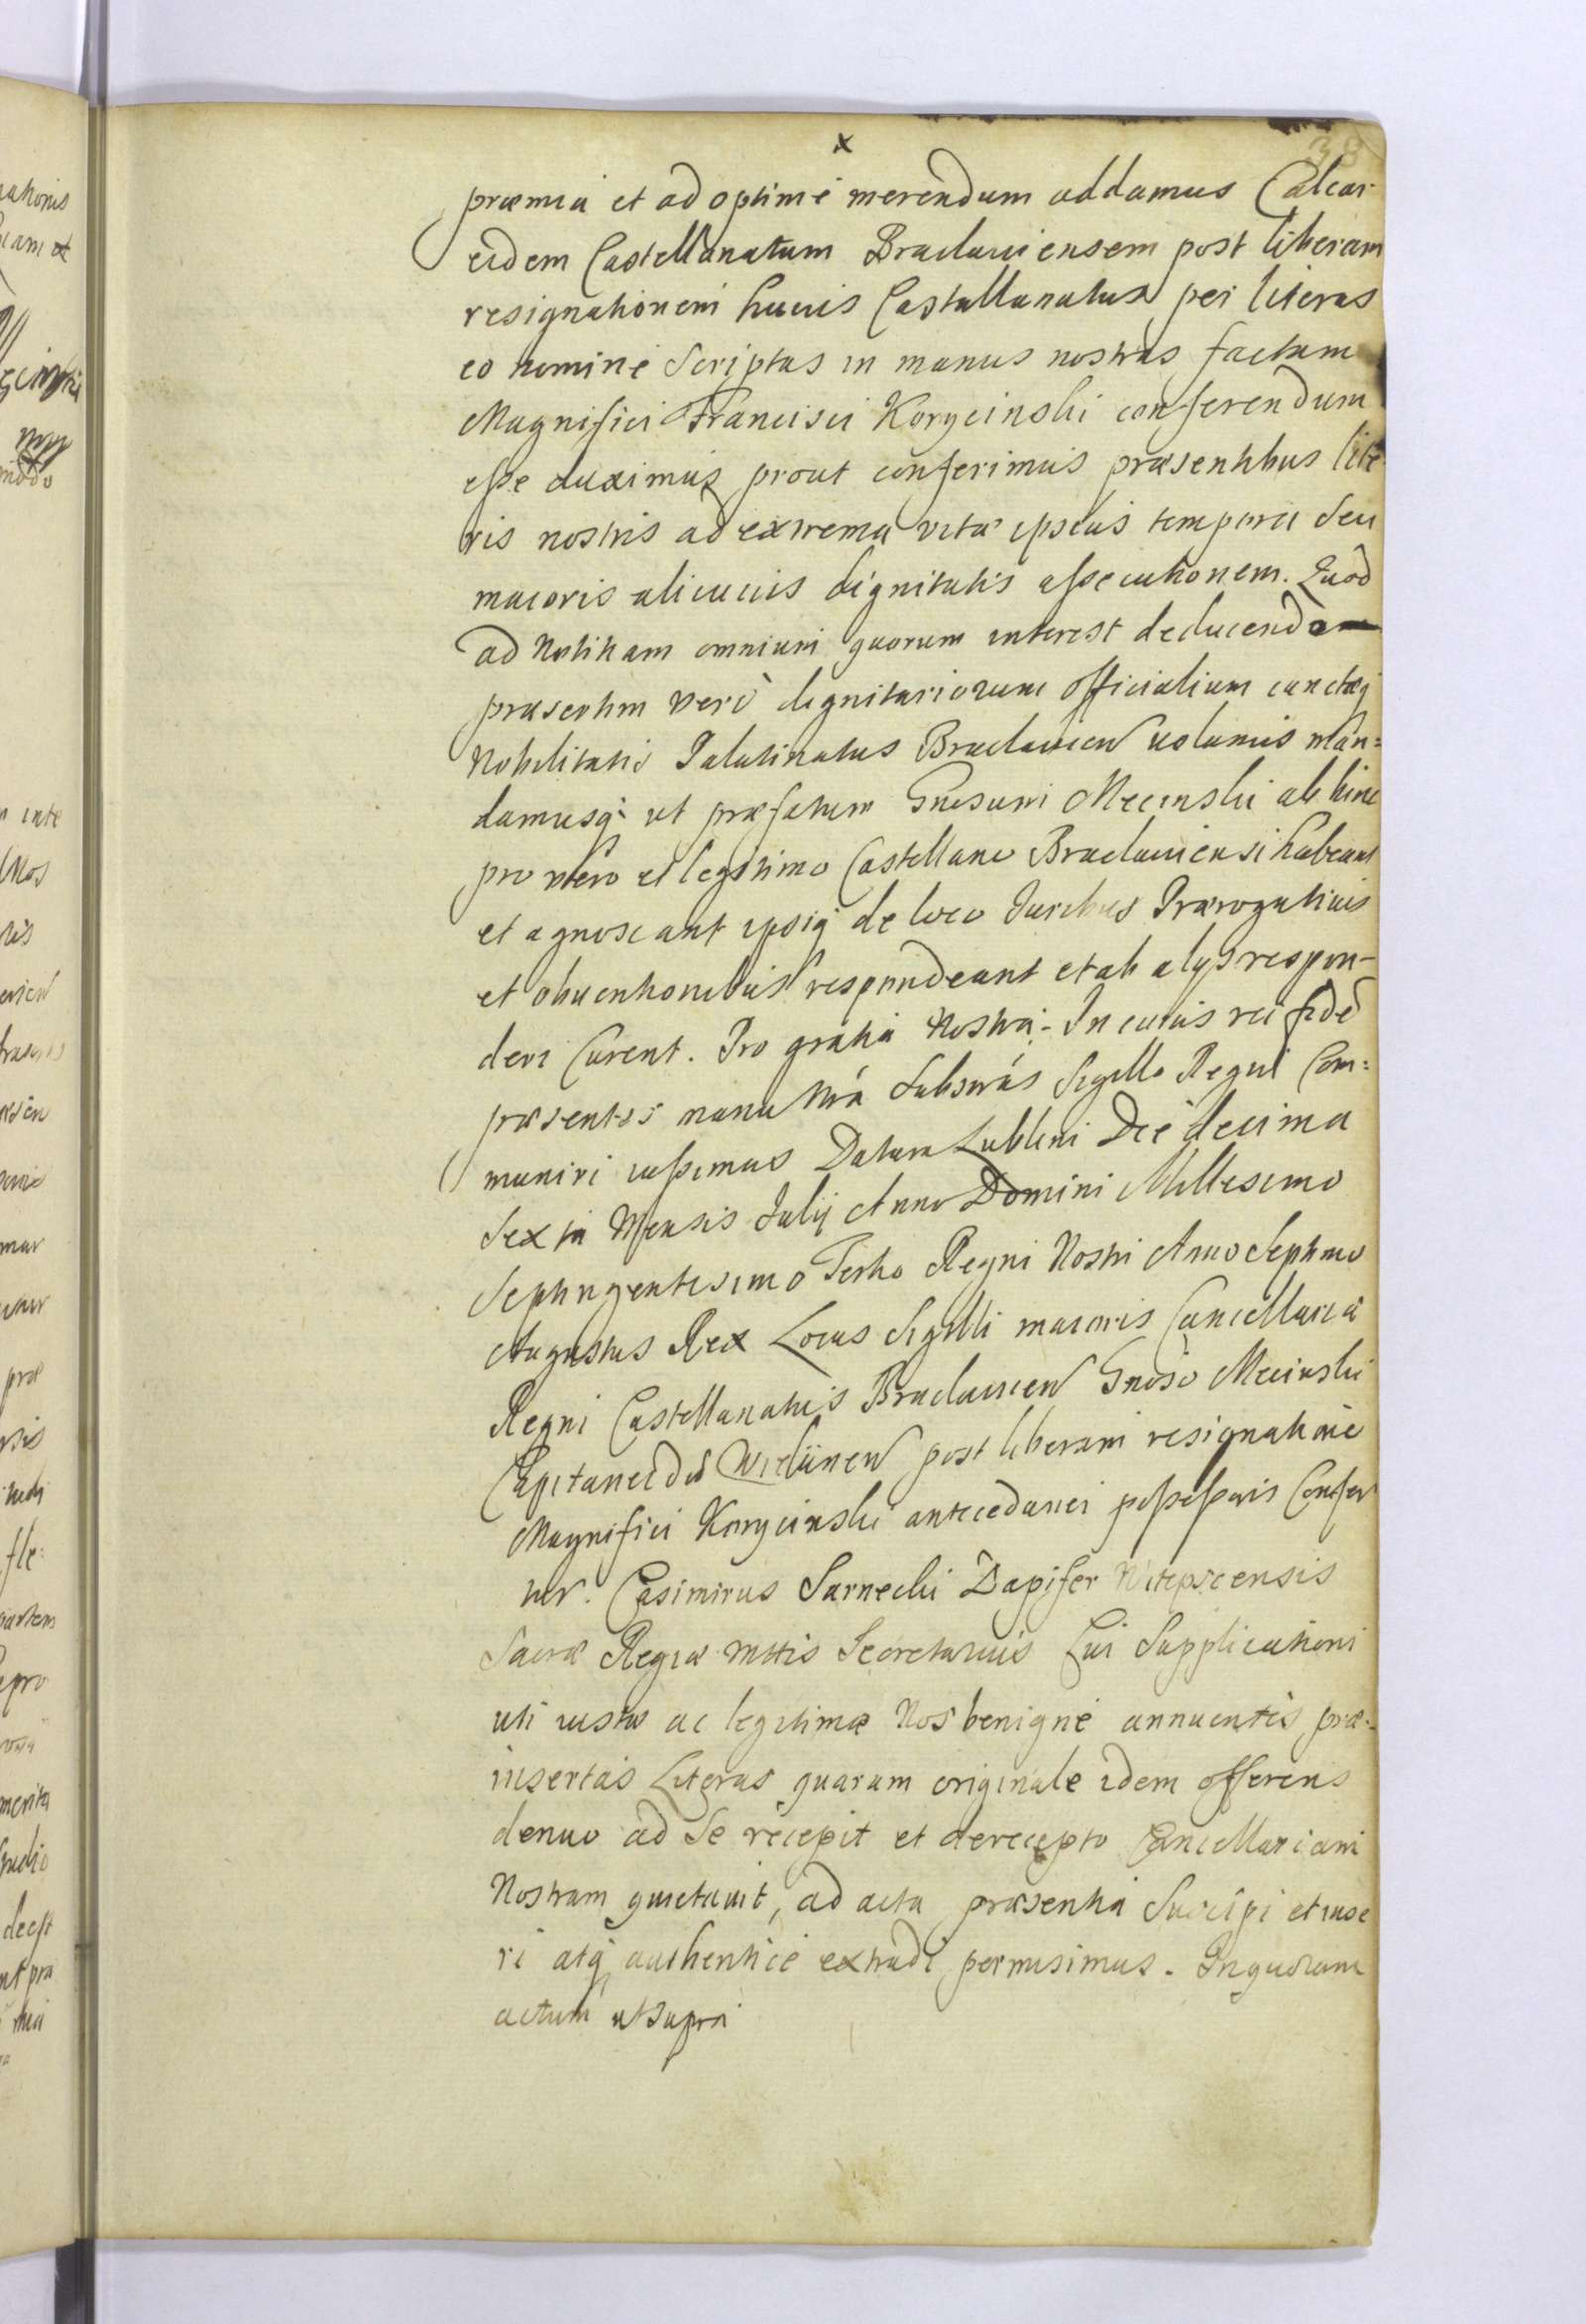 x
38
præmia et ad optimé merendum addamus Calcar
eidem Castellanatum Braclauiensem post liberam
resignationem huius Castallanatus per literas
eo nomine Scriptas in manus nostras factam
Magnifici Francisci Korycinski conferendum
esse duximus prout conferimus præsentibus lite
ris nostris ad extrema vitæ ipsius tempora seu
maioris alicuius dignitatis assecutionem. Quod
ad Notitiam omnium quorum interest deducendo
præsertim vero dignitariorum Officialium cunctæq
Nobilitatis Palatinatus Braclauien uolumus man=
damusq. ut præfatum Gnosum Mecinski ab hinc
pro vero et legitimo Castellano Braclauiensi habeant
et agnoscant ipsiq de loco Juribus Prærogatiuis
et obuentionibus respondeant et ab alys respon-
deri Curent. Pro gratia Nostra. In cuius rei fidē
præsentes manu Nrá Subscrás Sigillo Regni Com:
muniri iussimus Datum Lublini Die decima
Sexta Mensis Julij Anno Domini Millesimo
Septingentesimo Tertio Regni Nostri Anno Septimo
Augustus Rex Locus Sigilli maioris Cancellariæ
Regni Castellanatus Braclauien Gnoso Mecinski
Capitaneo Wieliunen post liberam resignatione
Magnifici Korycinski antecedanei possessoris Confer
tur. Casimirus Sarnecki Dapifer Witepscensis
Sacræ Regiæ Mttis Secretarius Cui Supplicationi
uti iustæ ac legitimæ Nos benigné annuentes præ-
insertas Literas quarum originale idem offerens
denuo ad Se recepit et derecepto Cancellariam
Nostram quietauit, ad acta præsentia Suscipi et inse
ri atq authenticé extradi permisimus. In quorum
actum ut supra